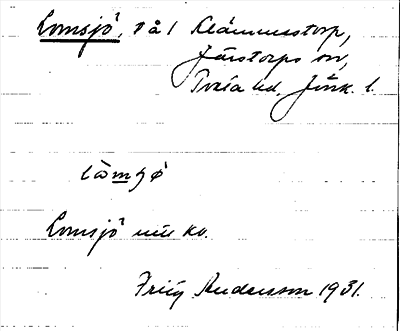 Lomsjö, sål Klämmestorp,
Järstorps sn,
Tveta hd, Jönk. l.
Lomsjö nu kv.
Fritz Andersson 1931.